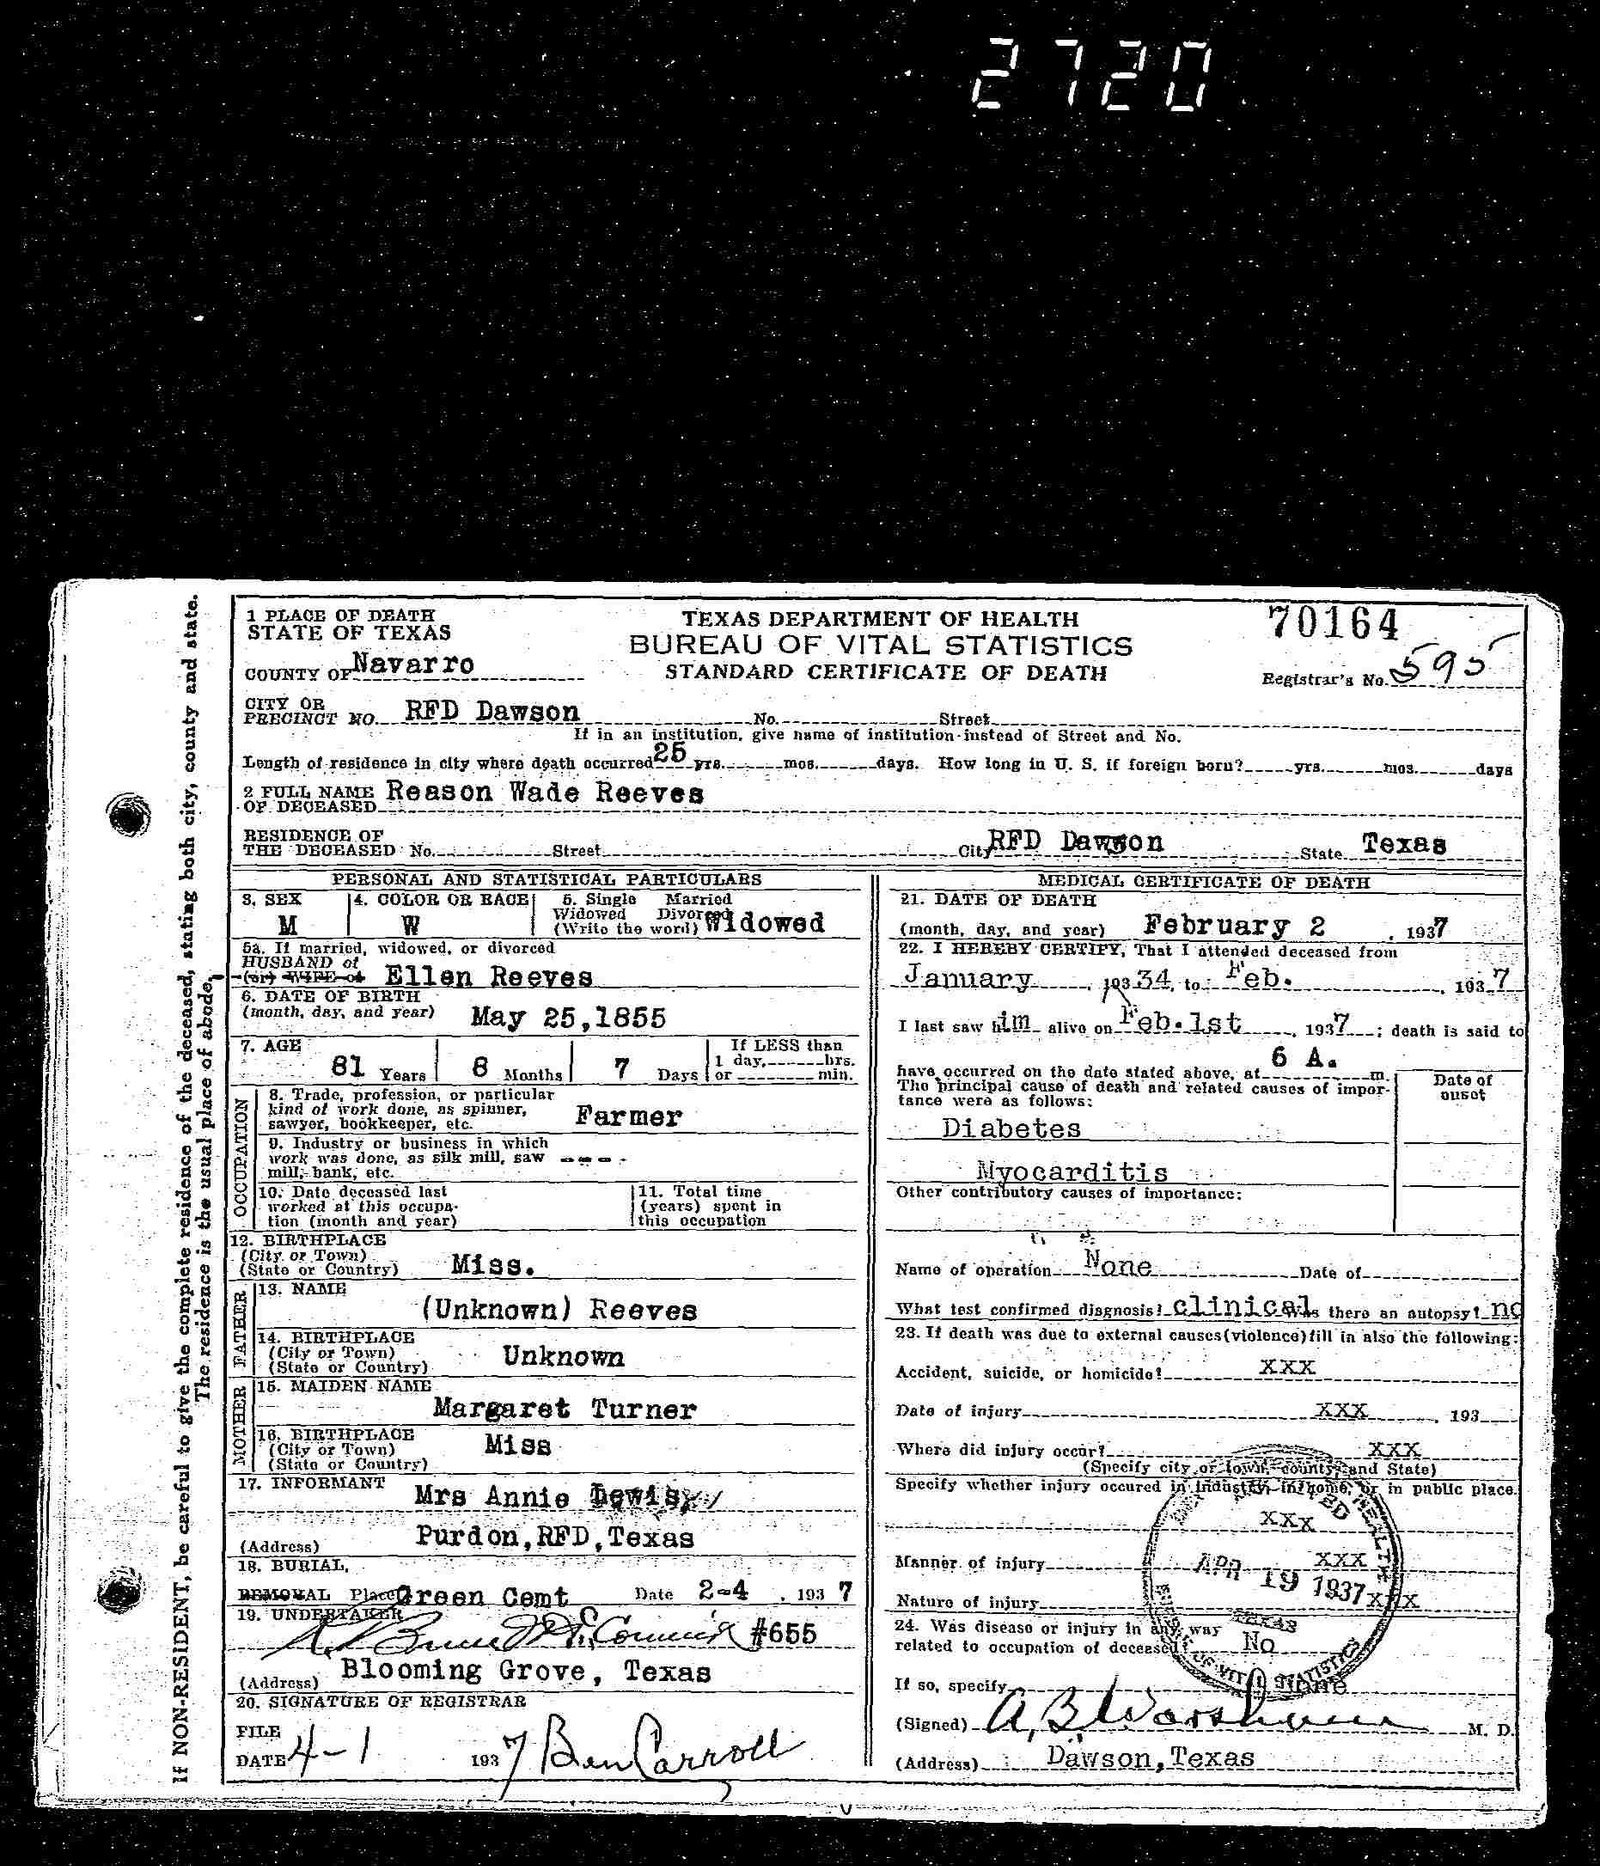 2720
If NON-RESIDENT, be careful to give the complete residence of the deceased, stating both city, county and state.
The residence is the usual place of abode.
1 PLACE OF DEATH
STATE OF TEXAS
COUNTY OF Navarro
TEXAS DEPARTMENT OF HEALTH
BUREAU OF VITAL STATISTICS
STANDARD CERTIFICATE OF DEATH
70164
Registrar's No. 595
CITY OR
PRECINCT NO. RFD Dawson No. Street
If in an institution, give name of institution instead of Street and No.
Length of residence in city where death occurred 25 yrs. mos. days. How long in U. S. if foreign born? yrs. mos. days
2 FULL NAME Reason Wade Reeves
OF DECEASED
RESIDENCE OF
THE DECEASED No. Street City RFD Dawson State Texas
PERSONAL AND STATISTICAL PARTICULARS
3. SEX
M
4. COLOR OR RACE
W
5. Single Married
Widowed Divorced
(Write the word) Widowed
5a. If married, widowed, or divorced
HUSBAND of
(or) WIFE of Ellen Reeves
6. DATE OF BIRTH
(month, day, and year) May 25,1855
7. AGE
81 Years 8 Months 7 Days
If LESS than
1 day, hrs.
or min.
OCCUPATION
8. Trade, profession, or particular
kind of work done, as spinner,
sawyer, bookkeeper, etc. Farmer
9. Industry or business in which
work was done, as silk mill, saw
mill, bank, etc. ----
10. Date deceased last
worked at this occupa-
tion (month and year)
11. Total time
(years) spent in
this occupation
12. BIRTHPLACE
(City or Town)
(State or Country) Miss.
FATHER
13. NAME
(Unknown) Reeves
14. BIRTHPLACE
(City or Town)
(State or Country) Unknown
MOTHER
15. MAIDEN NAME
Margaret Turner
16. BIRTHPLACE
(City or Town)
(State or Country) Miss
17. INFORMANT Mrs Annie Lewis
(Address) Purdon,RFD,Texas
18. BURIAL,
REMOVAL Place Green Cemt Date 2-4 , 1937
19. UNDERTAKER
#655
(Address) Blooming Grove, Texas
20. SIGNATURE OF REGISTRAR
FILE
DATE 4-1 1937 Ben Carroll
MEDICAL CERTIFICATE OF DEATH
21. DATE OF DEATH
(month, day, and year) February 2 , 1937
22. I HEREBY CERTIFY, That I attended deceased from
January , 193 34, to Feb. , 1937
I last saw him alive on Feb.1st , 1937 ; death is said to
have occurred on the date stated above, at 6 A. m
The principal cause of death and related causes of impor-
tance were as follows:
Date of
onset
Diabetes
Myocarditis
Other contributory causes of importance:
Name of operation None Date of
What test confirmed diagnosis? clinical Was there an autopsy? no
23. If death was due to external causes (violence) fill in also the following:
Accident, suicide, or homicide? XXX
Date of injury XXX , 193
Where did injury occur? XXX
(Specify city or town, county, and State)
Specify whether injury occured in industry, in home, or in public place.
XXX
Manner of injury XXX
Nature of injury XXX
APR 19 1937
TEXAS
24. Was disease or injury in any way
related to occupation of deceased No
If so, specify None
(Signed) A. B. Worsham M. D.
(Address) Dawson,Texas